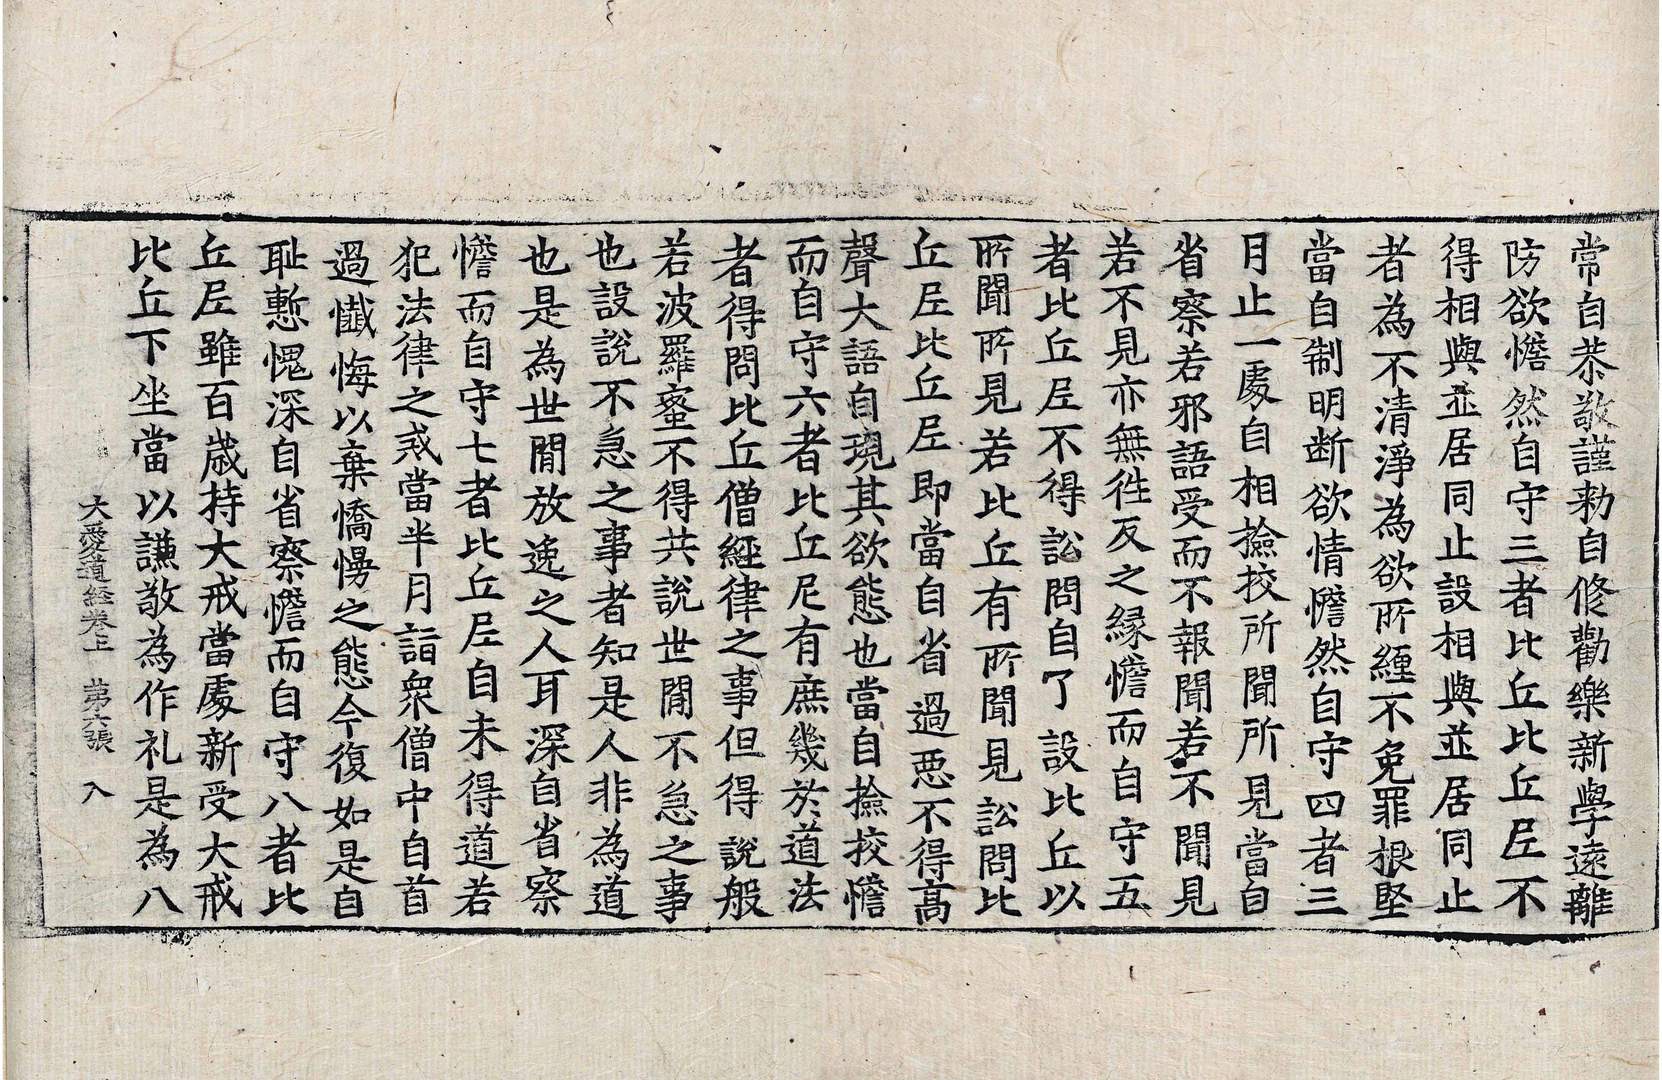 常自恭敬謹勑自修勸樂新學遠離
防欲憺然自守三者比丘比丘尼不
得相與並居同止設相與並居同止
者為不清淨為欲所纏不免罪根堅
當自制明断欲情憺然自守四者三
月止一處自相撿挍所聞所見當自
省察若邪語受而不報聞若不聞見
若不見亦無徃反之縁憺而自守五
者比丘尼不得訟問自了設比丘以
所聞所見若比丘有所聞見訟問比
丘尼比丘尼即當自省過惡不得高
聲大語自現其欲態也當自撿挍憺
而自守六者比丘尼有庶幾於道法
者得問比丘僧經律之事但得說般
若波羅蜜不得共說世閒不急之事
也設說不急之事者知是人非為道
也是為世閒放逸之人耳深自省察
憺而自守七者比丘尼自未得道若
犯法律之戒當半月詣衆僧中自首
過懺悔以棄憍慢之態今復如是自
耻慙愧深自省察憺而自守八者比
丘尼雖百歲持大戒當處新受大戒
比丘下坐當以謙敬為作礼是為八
大愛道經卷上 苐六張 入